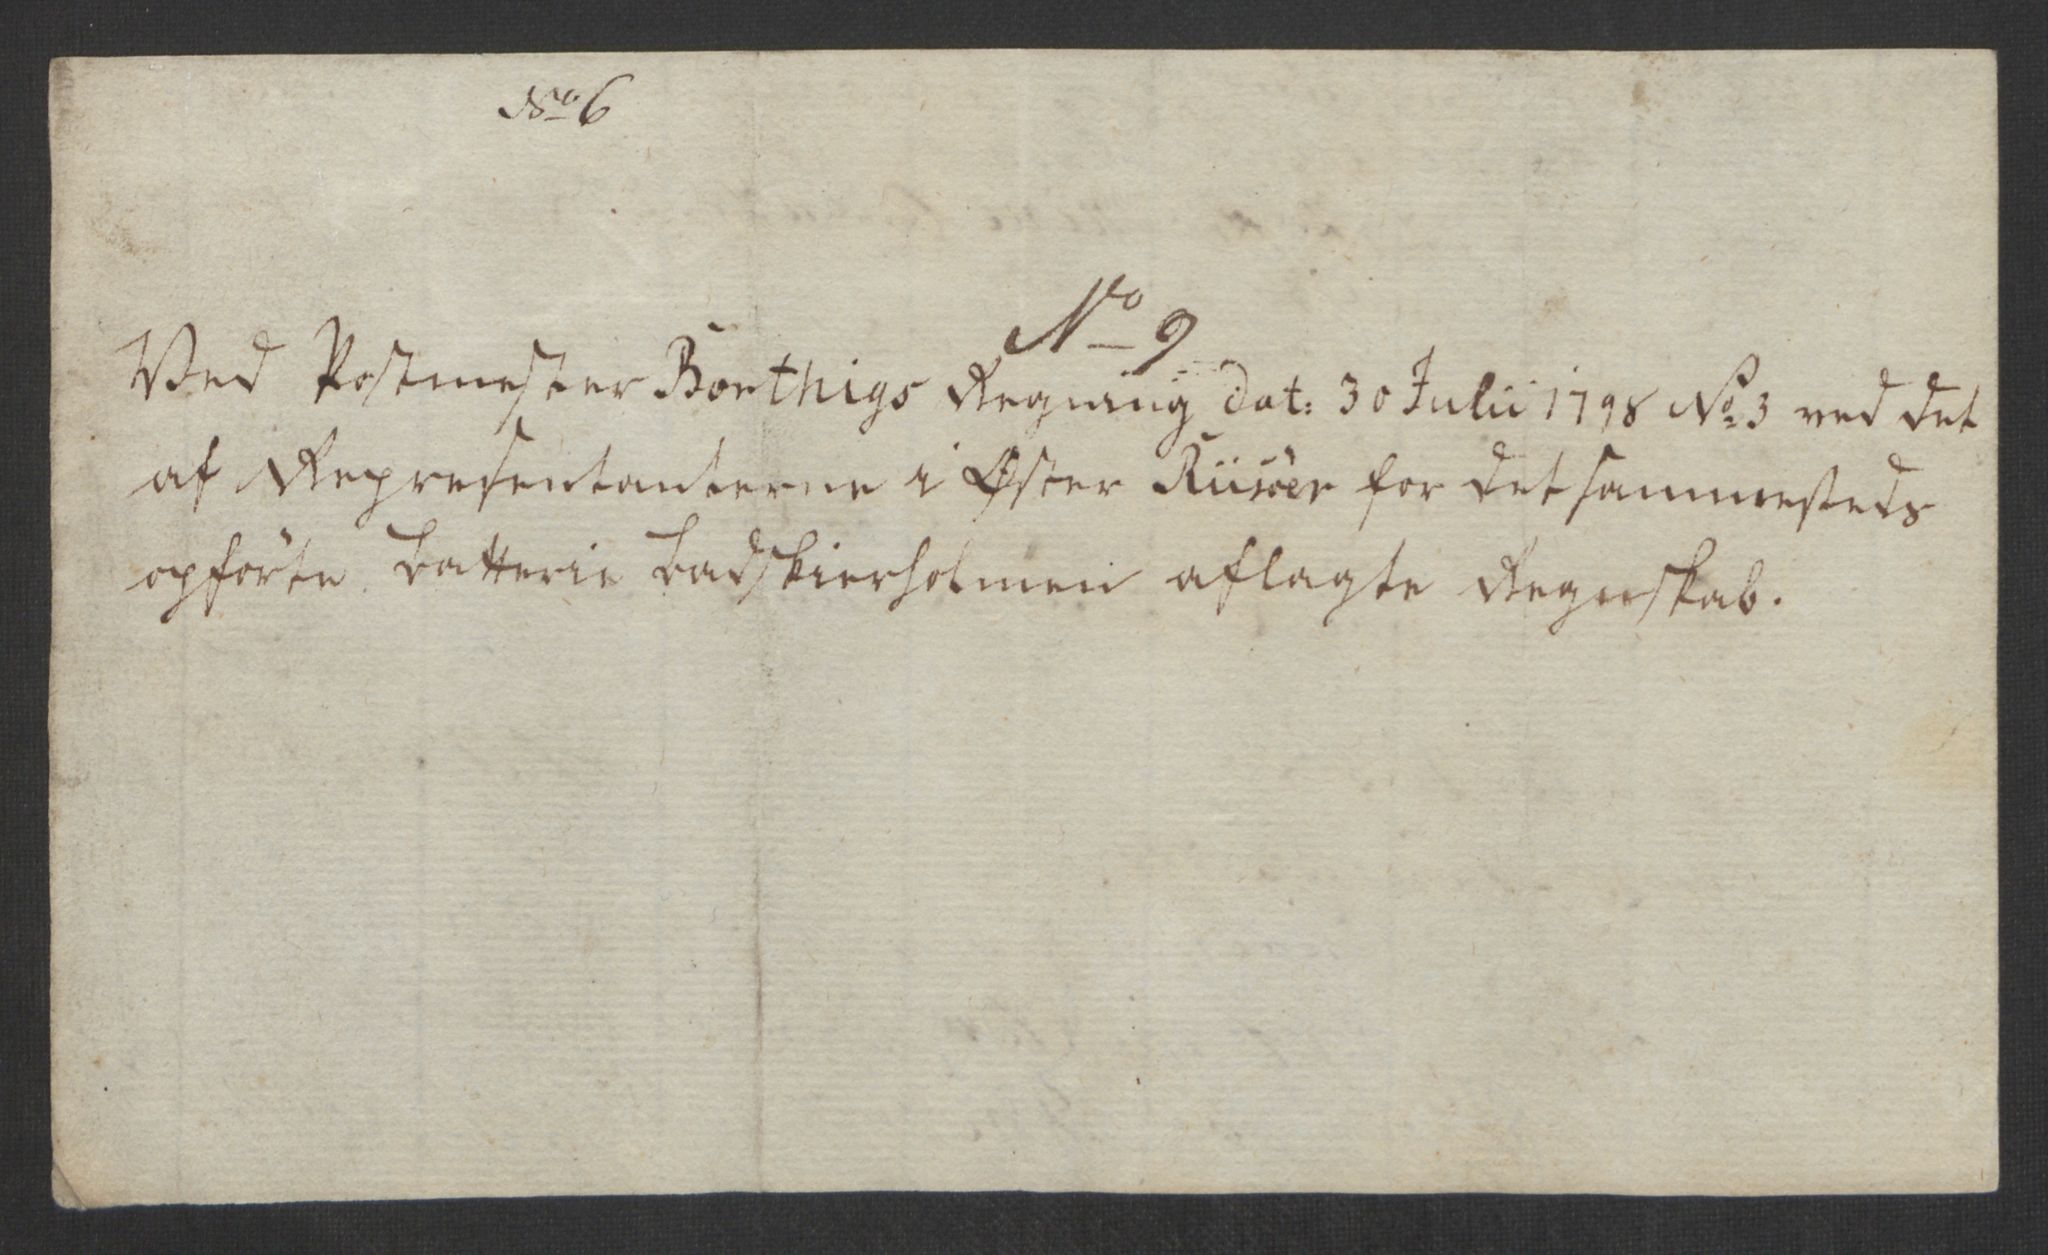 No 6
No 9
Ved Postmester Boethigs Regning dat: 30 Julii 1798 No: 3 ved det
af Repræsentanterne i Øster Riisöer for det sammesteds
opförte Batterie Badskierholmen aflagte Regnskab.